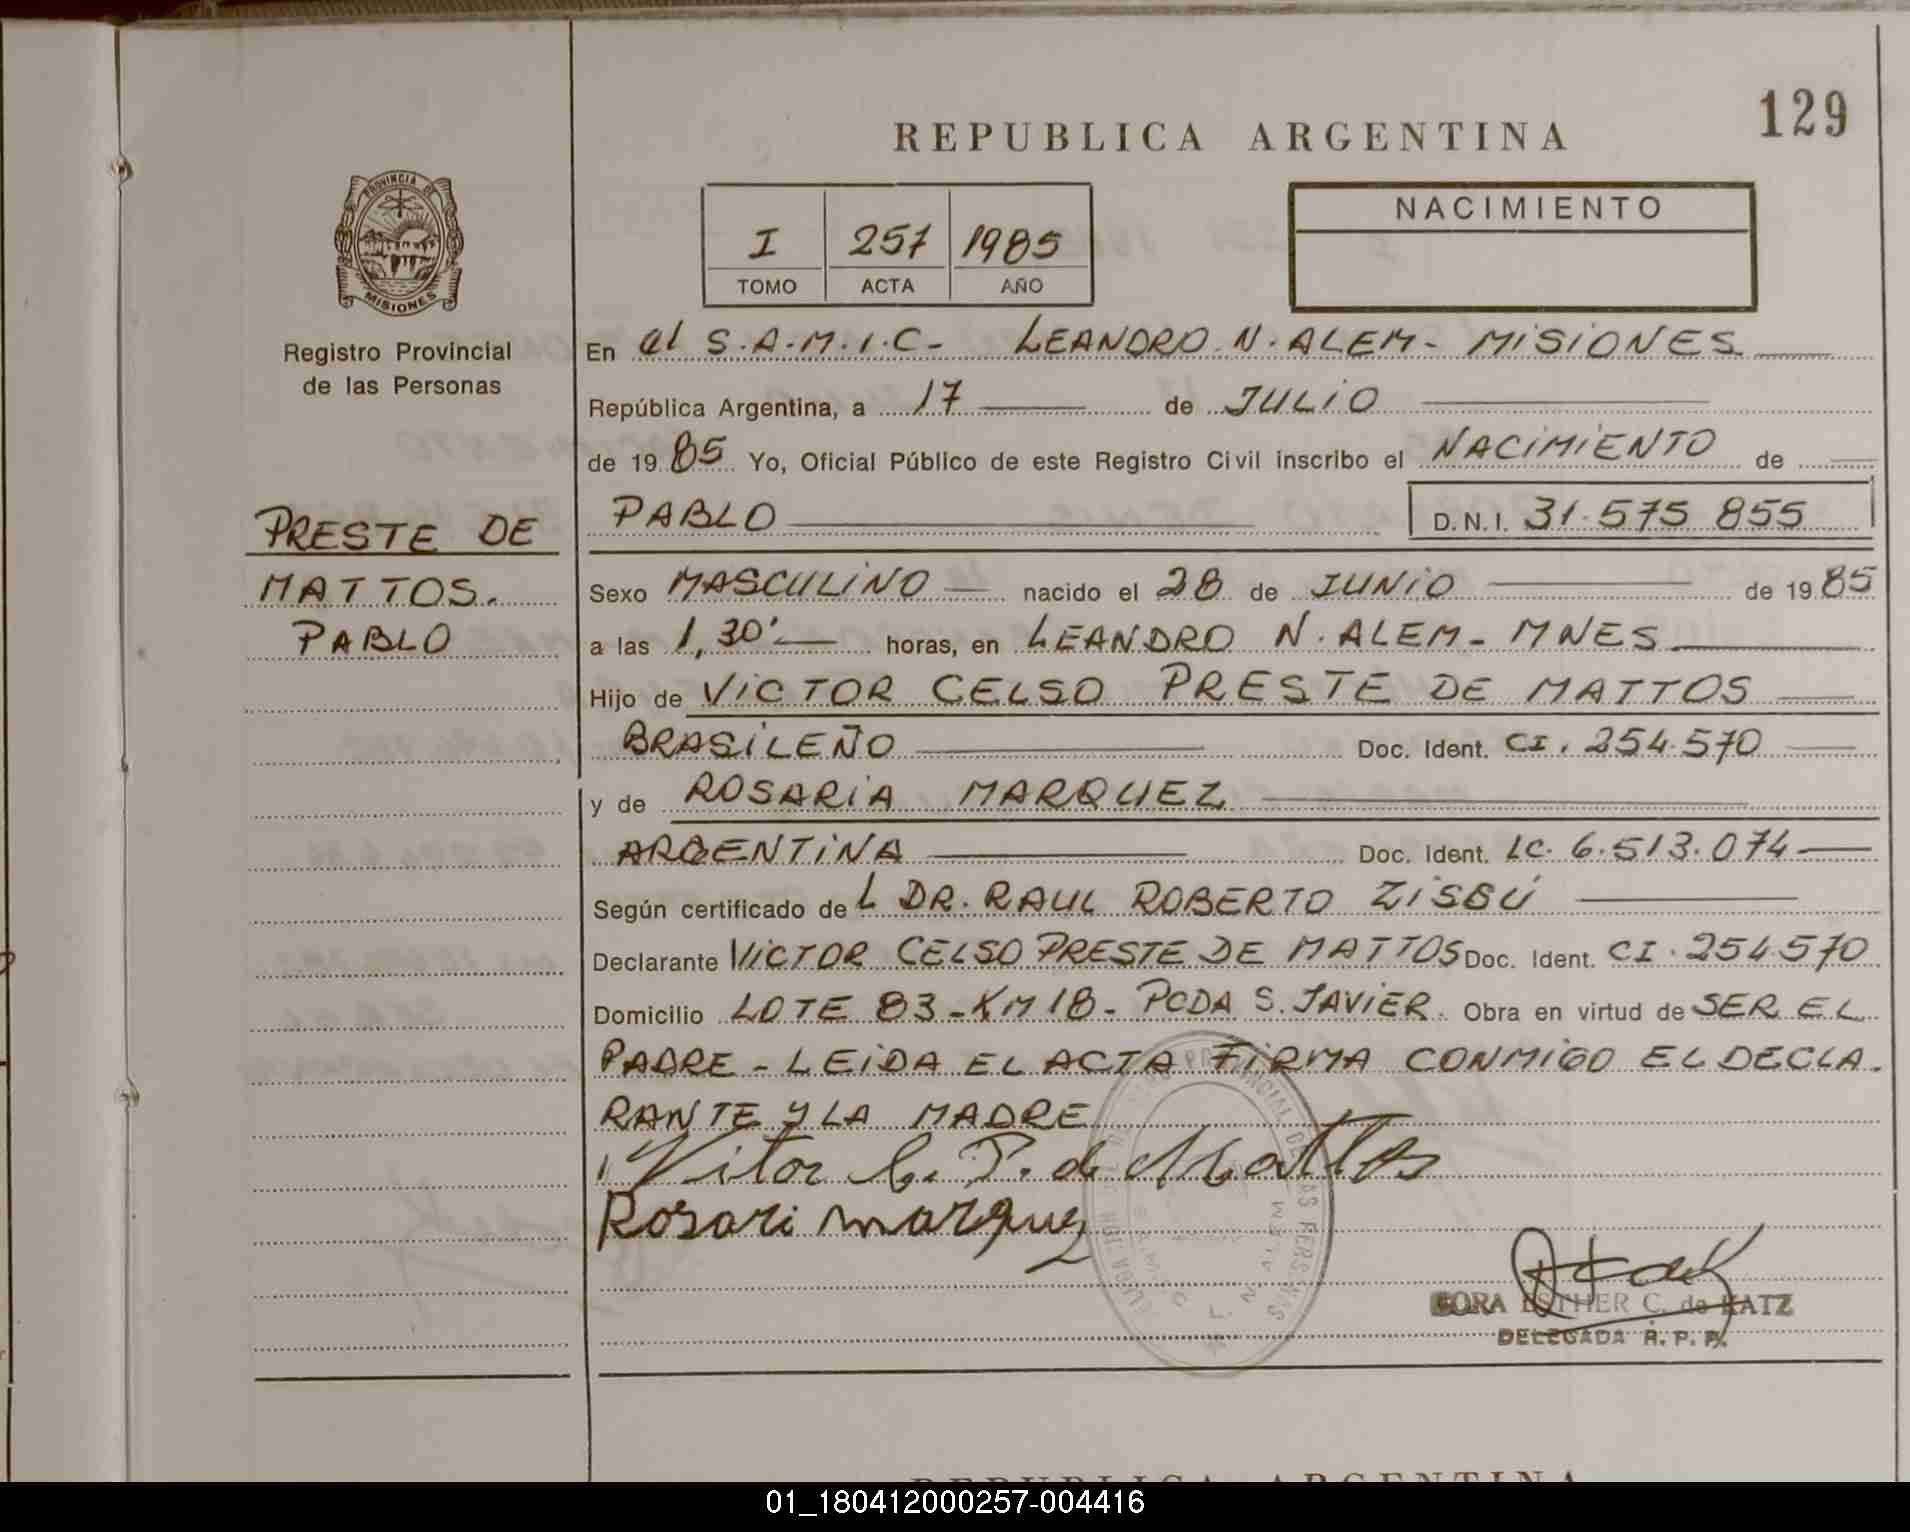 129
REPUBLICA ARGENTINA
PROVINCIA DE
MISIONES
Registro Provincial
de las Personas
I 257 1985
TOMO ACTA AÑO
NACIMIENTO
En el S.A.M.I.C- LEANDRO. N. ALEM- MISIONES
República Argentina, a 17 de JULIO
de 19 85 Yo, Oficial Público de este Registro Civil inscribo el NACIMIENTO de
PABLO D.N.I. 31.575 855
PRESTE DE
MATTOS.
PABLO
Sexo MASCULINO nacido el 28 de JUNIO de 19 85
a las 1,30' horas, en LEANDRO N. ALEM- MNES
Hijo de VICTOR CELSO PRESTE DE MATTOS
BRASILEÑO Doc. Ident. CI. 254.570
y de ROSARIA MARQUEZ
ARGENTINA Doc. Ident. LC. 6.513.074
Según certificado de L DR. RAUL ROBERTO ZISBÚ
Declarante VICTOR CELSO PRESTE DE MATTOS Doc. Ident. CI. 254.570
Domicilio LOTE 83-KM 18- PCDA S. JAVIER. Obra en virtud de SER EL
PADRE - LEIDA EL ACTA FIRMA CONMIGO EL DECLA.
RANTE Y LA MADRE
Vitor C. P. de Mattos
Rosari marquez
DORA ESTHER C. de KATZ
DELEGADA R. P. P.
REPUBLICA ARGENTINA
01_180412000257-004416